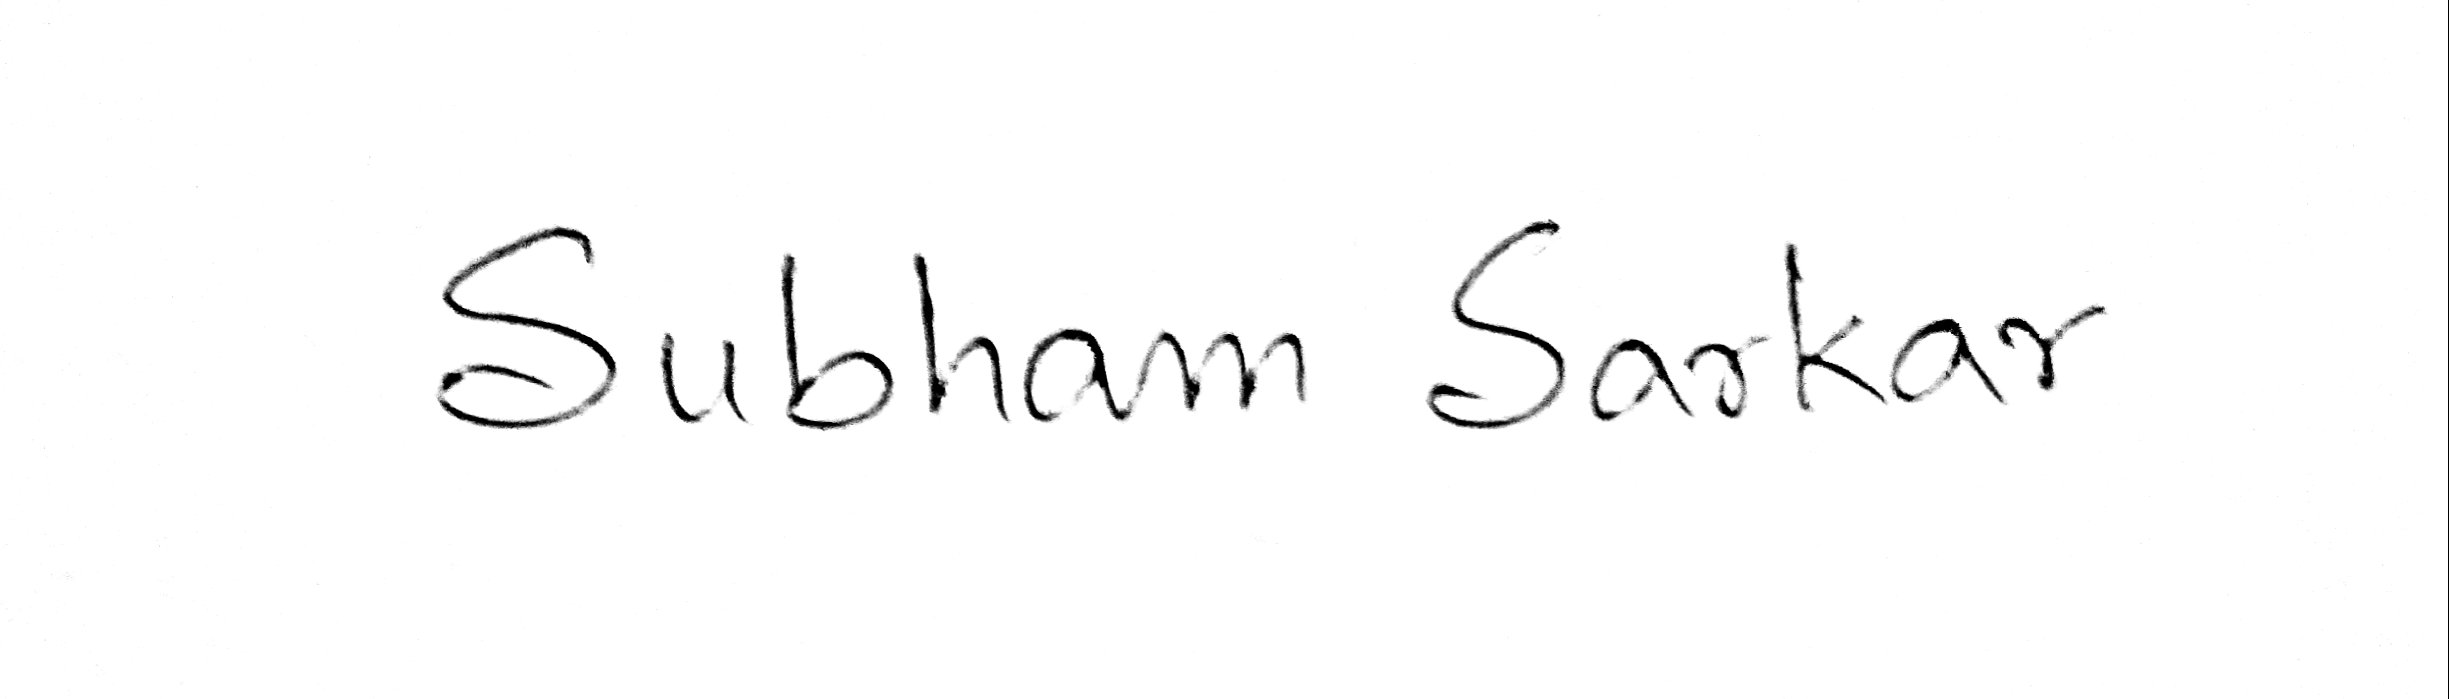 Subham Sarkar